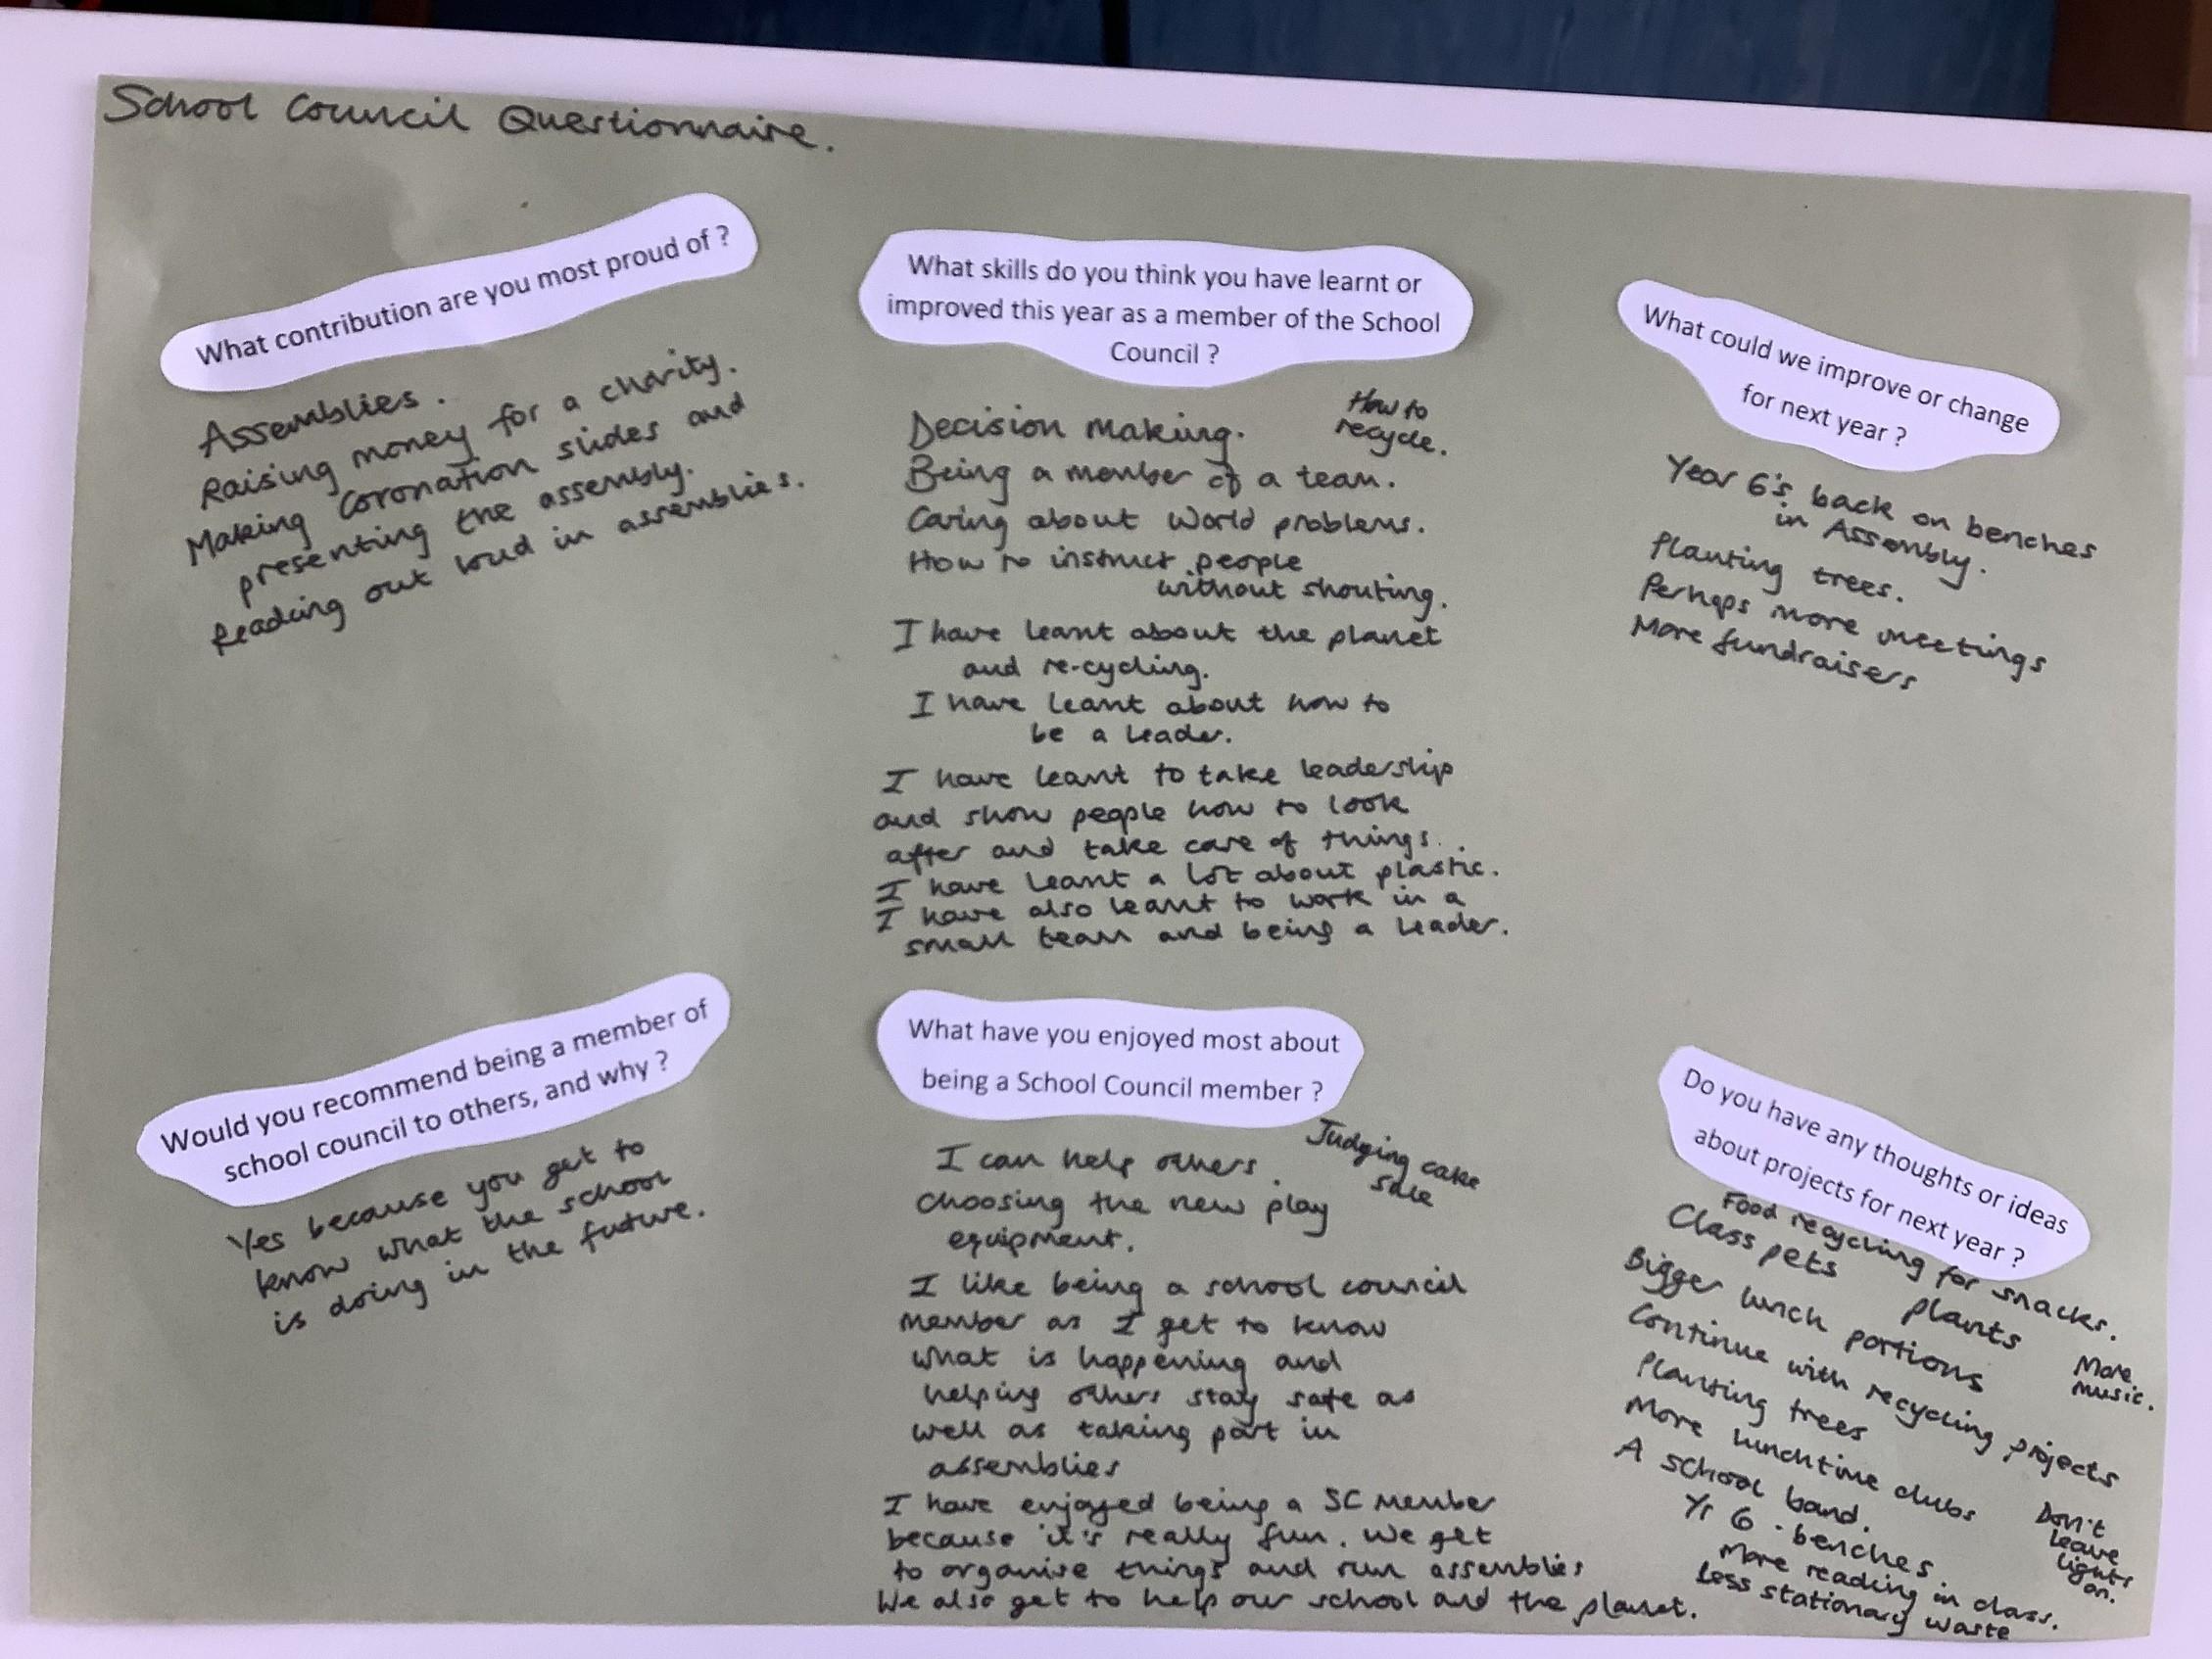 School Council Questionnaire.
What contribution are you most proud of ?
Assemblies.
Raising money for a charity.
Making Coronation slides and
presenting the assembly.
Reading out loud in assemblies.
What skills do you think you have learnt or
improved this year as a member of the School
Council ?
How to
recycle.
Decision making.
Being a member of a team.
Caring about world problems.
How to instruct people
without shouting.
I have learnt about the planet
and re-cycling.
I have learnt about how to
be a leader.
I have learnt to take leadership
and show people how to look
after and take care of things.
I have learnt a lot about plastic.
I have also learnt to work in a
small team and being a leader.
What could we improve or change
for next year ?
Year 6's back on benches
in Assembly.
Planting trees.
Perhaps more meetings
More fundraisers
Would you recommend being a member of
school council to others, and why ?
Yes because you get to
know what the school
is doing in the future.
What have you enjoyed most about
being a School Council member ?
Judging cake
sale
I can help others.
choosing the new play
equipment.
I like being a school council
member as I get to know
what is happening and
helping others stay safe as
well as taking part in
assemblies
I have enjoyed being a SC member
because it's really fun. We get
to organise things and run assemblies
We also get to help our school and the planet.
Do you have any thoughts or ideas
about projects for next year ?
Food recycling for snacks.
Class pets
plants
Bigger lunch portions
More
music.
Continue with recycling projects
Planting trees
More lunchtime clubs
A school band.
Don't
leave
lights
on.
Yr 6 - benches.
More reading in class.
Less stationary waste